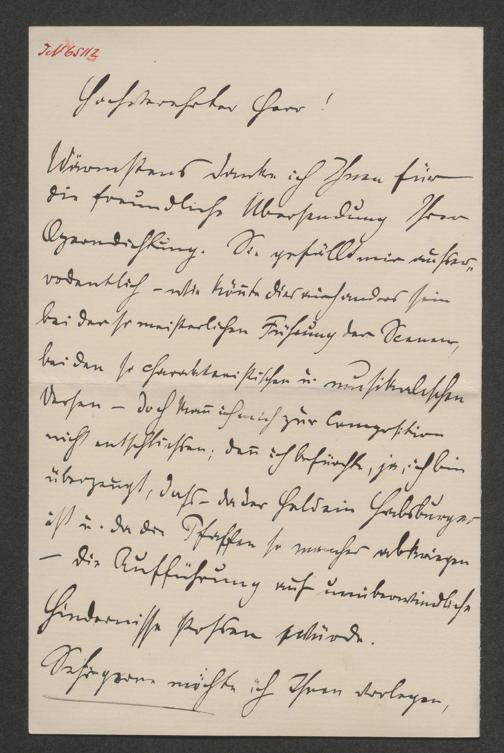 IN 65112
Hochverehrter Herr!
Wärmstens danke ich Ihnen für
die freundliche Übersendung Ihrer
Operndichtung. Sie gefällt mir ausser-
ordentlich – wie könnte dies auch anders sein
bei der so meisterlichen Führung der Scenen,
bei den so charakteristischen u. musikalischen
Versen – doch kann ich mich zur Composition
nicht entschliessen; denn ich befürchte, ja, ich bin
überzeugt, dass – da der Held ein Habsburger
ist u. da die Pfaffen so manches abkriegen
– die Aufführung auf unüberwindliche
Hindernisse stossen würde.
Sehr gerne möchte ich Ihnen vorlegen,